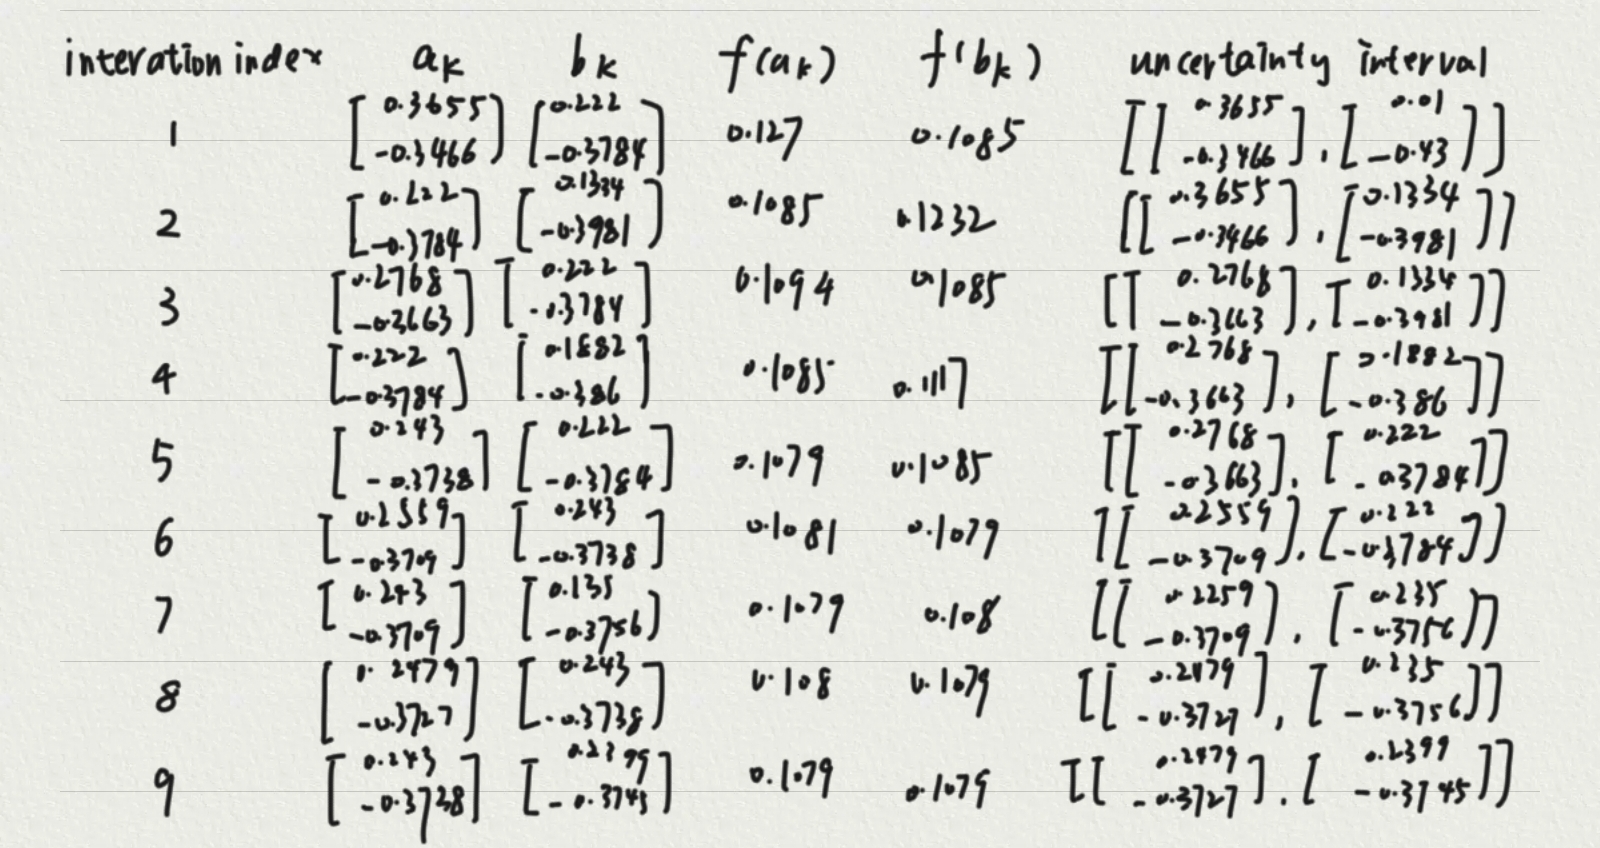 interation index ak bk f(ak) f(bk) uncertainty interval
1 [0.3655 -0.3466] [0.222 -0.3784] 0.127 0.1085 [[0.3655 -0.3466], [0.01 -0.43]]
2 [0.222 -0.3784] [0.1334 -0.3981] 0.1085 0.1232 [[0.3655 -0.3466], [0.1334 -0.3981]]
3 [0.2768 -0.3663] [0.222 -0.3784] 0.1094 0.1085 [[0.2768 -0.3663], [0.1334 -0.3981]]
4 [0.222 -0.3784] [0.1882 -0.386] 0.1085 0.1117 [[0.2768 -0.3663], [0.1882 -0.386]]
5 [0.243 -0.3738] [0.222 -0.3784] 0.1079 0.1085 [[0.2768 -0.3663], [0.222 -0.3784]]
6 [0.2559 -0.3709] [0.243 -0.3738] 0.1081 0.1079 [[0.2559 -0.3709], [0.222 -0.3784]]
7 [0.243 -0.3709] [0.135 -0.3756] 0.1079 0.108 [[0.2259 -0.3709], [0.235 -0.3756]]
8 [0.2479 -0.3727] [0.243 -0.3738] 0.108 0.1079 [[0.2479 -0.3727], [0.235 -0.3756]]
9 [0.243 -0.3738] [0.2399 -0.3745] 0.1079 0.1079 [[0.2479 -0.3727], [0.2399 -0.3745]]